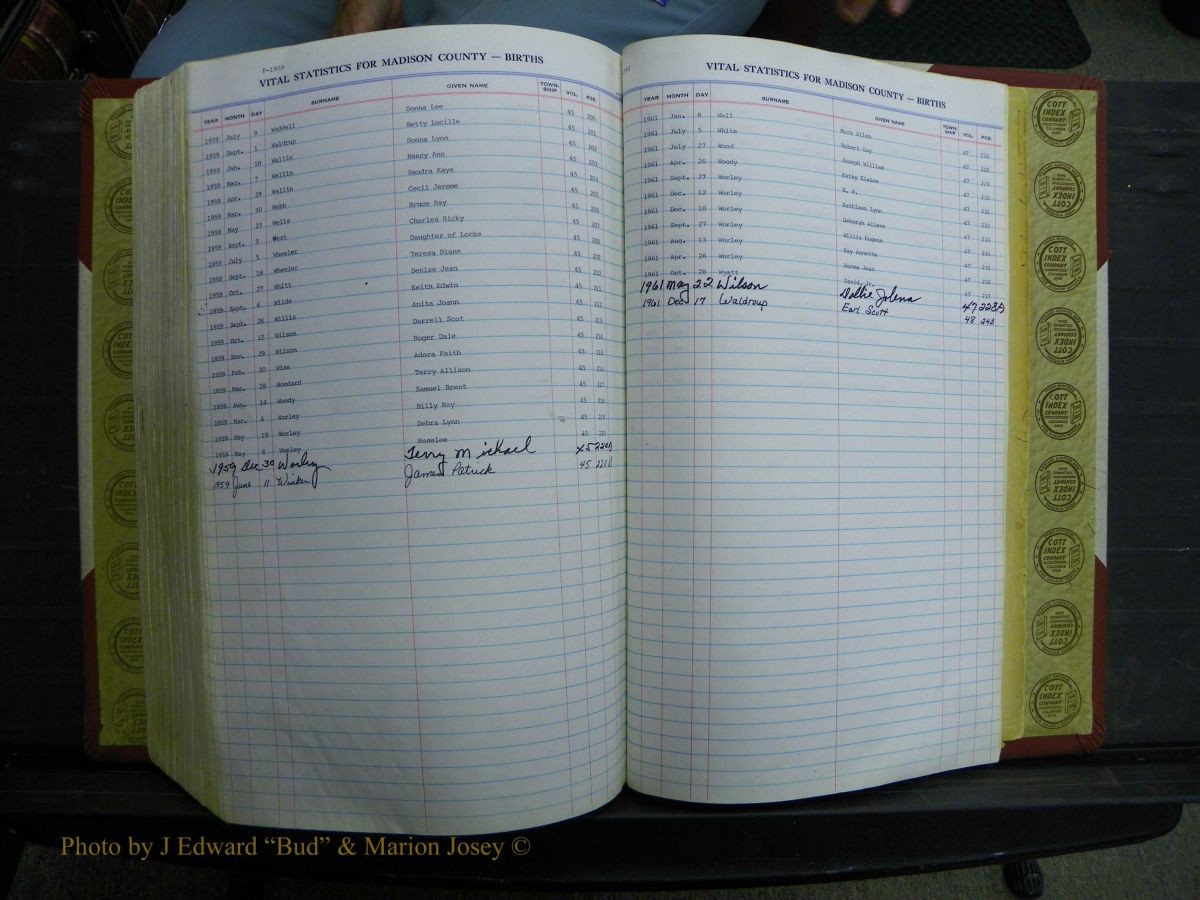 P-1959
VITAL STATISTICS FOR MADISON COUNTY — BIRTHS
YEAR MONTH DAY SURNAME GIVEN NAME TOWN-SHIP VOL. PGE.
1959 July 9 Waddell Donna Lee 45 200
1959 Sept. 1 Waldrup Betty Lucille 45 201
1959 Jan. 18 Wallin Donna Lynn 45 202
1959 Mar. 7 Wallin Nancy Ann 45 203
1959 Apr. 29 Wallin Sandra Kaye 45 204
1959 Mar. 30 Webb Cecil Jerome 45 205
1959 May 23 Wells Bruce Ray 45 206
1959 Sept. 9 West Charles Ricky 45 207
1959 July 5 Wheeler Daughter of Locke 45 208
1959 Sept. 18 Wheeler Teresa Diane 45 209
1959 Oct. 27 Whitt Denise Jean 45 210
1959 Sept. 6 Wilde Keith Edwin 45 211
1959 Sept. 28 Willis Anita Joann 45 212
1959 Oct. 12 Wilson Darrell Scot 45 213
1959 Nov. 29 Wilson Roger Dale 45 214
1959 Feb. 20 Wise Adora Faith 45 215
1959 Mar. 28 Woodard Terry Allison 45 216
1959 Aug. 14 Woody Samuel Brent 45 217
1959 Mar. 4 Worley Billy Ray 45 218
1959 May 19 Worley Debra Lynn 45 219
1959 May 8 Worley Roselee 45 220
1959 Dec 30 Worley Terry Michael 45 220A
1959 June 11 Winker James Patrick 45 220B
VITAL STATISTICS FOR MADISON COUNTY — BIRTHS
YEAR MONTH DAY SURNAME GIVEN NAME TOWN-SHIP VOL. PGE.
1961 Jan. 8 Wall Mark Allen 47
1961 July 5 White Robert 47
1961 July 27 Wood Joseph William 47
1961 Apr. 26 Woody Kathy Elaine 47
1961 Sept. 27 Worley R. W. 47
1961 Dec. 12 Worley Kathleen Lynn 47 231
1961 Dec. 10 Worley Deborah Allene 47 232
1961 Sept. 27 Worley Willis Eugene 47 233
1961 Aug. 13 Worley Kay Annette 47
1961 Apr. 26 Worley Norma Jean 47
1961 Oct. 28 Wyatt David, Jr. 47
1961 May 22 Wilson Dollie Jolena 47 228A
1961 Dec 17 Waldroup Earl Scott 48 248
COTT INDEX COMPANY COLUMBUS OHIO
Photo by J Edward “Bud” & Marion Josey ©